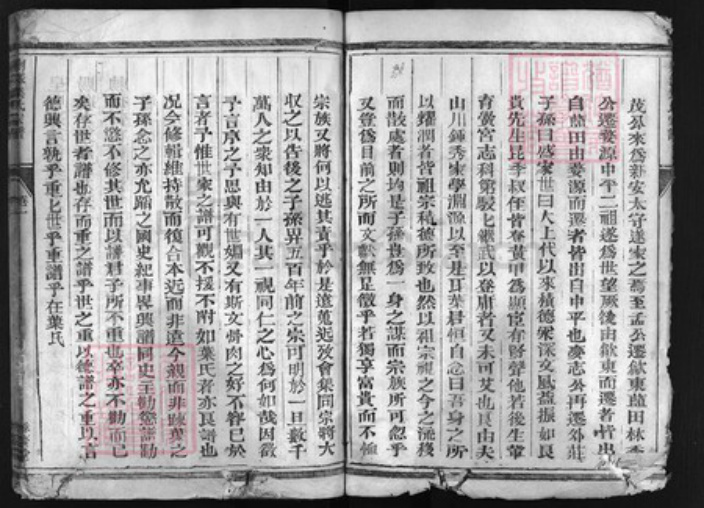 茂公來爲新安太守遂家之焉至孟公遷歙東藍田林
公遷婺源中平二祖遂爲世望厥後由歙東而遷者皆出
自藍田由婺源而遷者皆出自中平也夌志公再遷外莊
子孫日盛家世日大上代以來積德深文風益振如良
貴先生昆季叔侄皆登黃甲爲顯宦有賢聲他若後生輩
育黌宮志科第駸乀繼武以登庸者又未可艾也良由夫
山川鍾秀家學淵源以至是耳葉君恒自念曰吾身之所
以耀潤者皆祖宗積德所致也然以祖宗視之今之流移
而散處者則均是子孫豈爲一身之謀而宗族所可忽乎
又登爲目前之所而文獻無足徵乎若獨享富貴而不恤
宗族又將何以逃其責乎於是遠蒐近攷會集同宗將大
収之以告後之子孫畀五百年前之宗可明於一旦數千
萬人之衆知由於一人其一視同仁之心爲何如哉因徵
予言序之予思與有世姻又有斯文骨肉之好不容已於
言者予惟世家之譜可觀不援不附如葉氏者亦良譜也
况今修輯維持散而復合本近而非遠今親而非踈葉之
子孫念之亦尤蹈之國史紀事畀興譜同史主勸懲譜勸
而不懲不修其世而以譜君子所不重也卒亦不勸而已
矣存世者譜也存而重之譜乎世之重以德譜之重以言
德興言孰乎重乀世乎重譜乎在葉氏